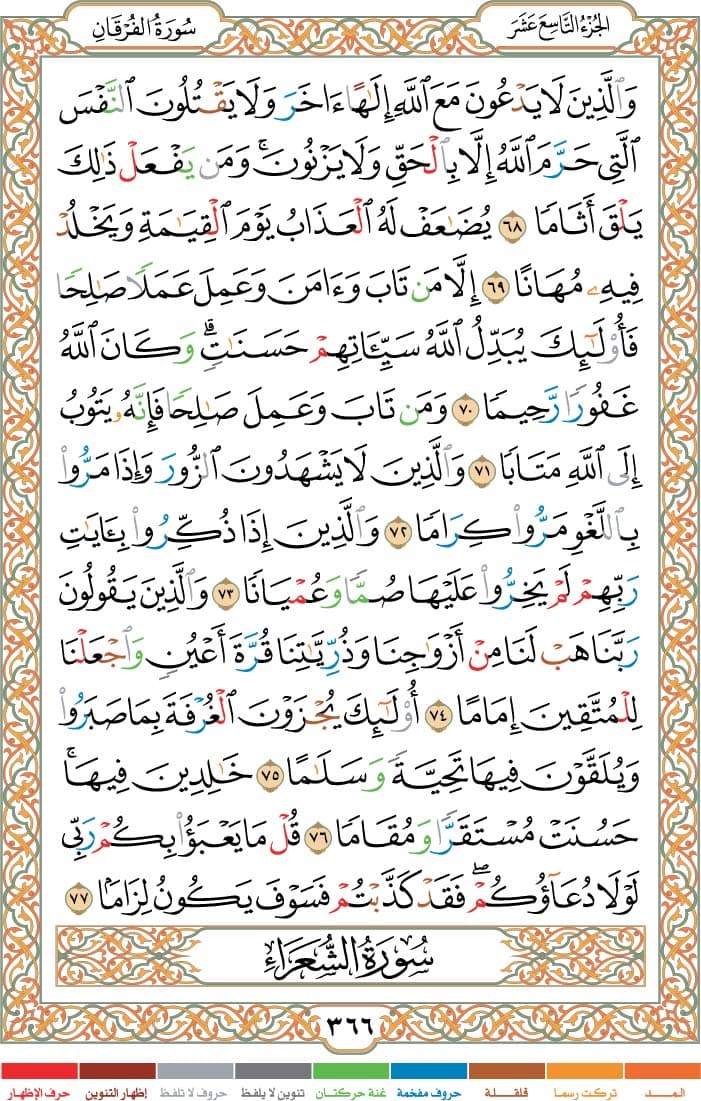 الجزء التاسع عشر
سورة الفرقان
وَٱلَّذِينَ لَا يَدْعُونَ مَعَ ٱللَّهِ إِلَٰهًا ءَاخَرَ وَلَا يَقْتُلُونَ ٱلنَّفْسَ
ٱلَّتِي حَرَّمَ ٱللَّهُ إِلَّا بِٱلْحَقِّ وَلَا يَزْنُونَ ۚ وَمَن يَفْعَلْ ذَٰلِكَ
يَلْقَ أَثَامًا ٦٨ يُضَٰعَفْ لَهُ ٱلْعَذَابُ يَوْمَ ٱلْقِيَٰمَةِ وَيَخْلُدْ
فِيهِۦ مُهَانًا ٦٩ إِلَّا مَن تَابَ وَءَامَنَ وَعَمِلَ عَمَلًا صَٰلِحًا
فَأُو۟لَٰٓئِكَ يُبَدِّلُ ٱللَّهُ سَيِّـَٔاتِهِمْ حَسَنَٰتٍ ۗ وَكَانَ ٱللَّهُ
غَفُورًا رَّحِيمًا ٧٠ وَمَن تَابَ وَعَمِلَ صَٰلِحًا فَإِنَّهُۥ يَتُوبُ
إِلَى ٱللَّهِ مَتَابًا ٧١ وَٱلَّذِينَ لَا يَشْهَدُونَ ٱلزُّورَ وَإِذَا مَرُّوا۟
بِٱللَّغْوِ مَرُّوا۟ كِرَامًا ٧٢ وَٱلَّذِينَ إِذَا ذُكِّرُوا۟ بِـَٔايَٰتِ
رَبِّهِمْ لَمْ يَخِرُّوا۟ عَلَيْهَا صُمًّا وَعُمْيَانًا ٧٣ وَٱلَّذِينَ يَقُولُونَ
رَبَّنَا هَبْ لَنَا مِنْ أَزْوَٰجِنَا وَذُرِّيَّٰتِنَا قُرَّةَ أَعْيُنٍ وَٱجْعَلْنَا
لِلْمُتَّقِينَ إِمَامًا ٧٤ أُو۟لَٰٓئِكَ يُجْزَوْنَ ٱلْغُرْفَةَ بِمَا صَبَرُوا۟
وَيُلَقَّوْنَ فِيهَا تَحِيَّةً وَسَلَٰمًا ٧٥ خَٰلِدِينَ فِيهَا ۚ
حَسُنَتْ مُسْتَقَرًّا وَمُقَامًا ٧٦ قُلْ مَا يَعْبَؤُا۟ بِكُمْ رَبِّي
لَوْلَا دُعَآؤُكُمْ ۖ فَقَدْ كَذَّبْتُمْ فَسَوْفَ يَكُونُ لِزَامًۢا ٧٧
سورة الشعراء
٣٦٦
المـــد تركت رسما قلقـلة حروف مفخمة غنة حركتان تنوين لا يلفظ حروف لا تلفظ إظهار التنوين حرف الإظهار